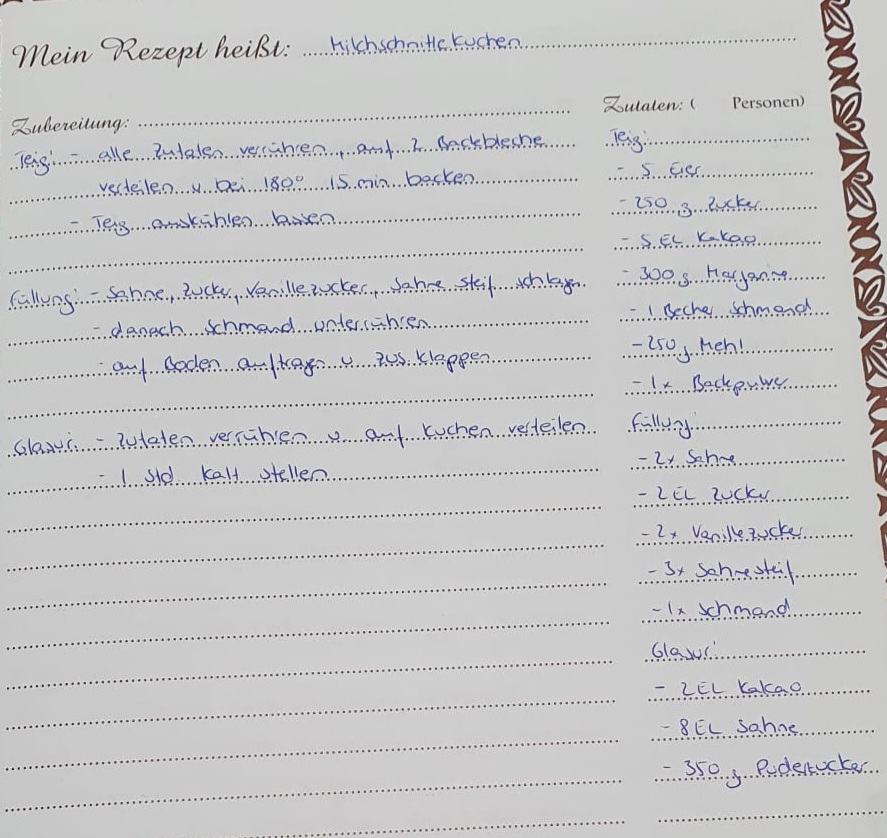 Mein Rezept heißt: Milchschnittekuchen
Zubereitung:
Teig: - alle Zutaten verrühren, auf 2 Backbleche
verteilen u. bei 180° 15 min backen
- Teig auskühlen lassen
Füllung: - Sahne, Zucker, Vanillezucker, Sahne steif schlagen
- danach Schmand unterrühren
- auf Boden auftragen u. zus. klappen
Glasur: - Zutaten verrühren u. auf Kuchen verteilen
- 1 Std. kalt stellen
Zutaten: ( Personen)
Teig:
- 5 Eier
- 250 g Zucker
- 5 EL Kakao
- 300 g Margarine
- 1 Becher Schmand
- 250 g Mehl
- 1x Backpulver
Füllung:
- 2x Sahne
- 2 EL Zucker
- 2x Vanillezucker
- 3x Sahnesteif
- 1x Schmand
Glasur:
- 2 EL Kakao
- 8 EL Sahne
- 350 g Puderzucker